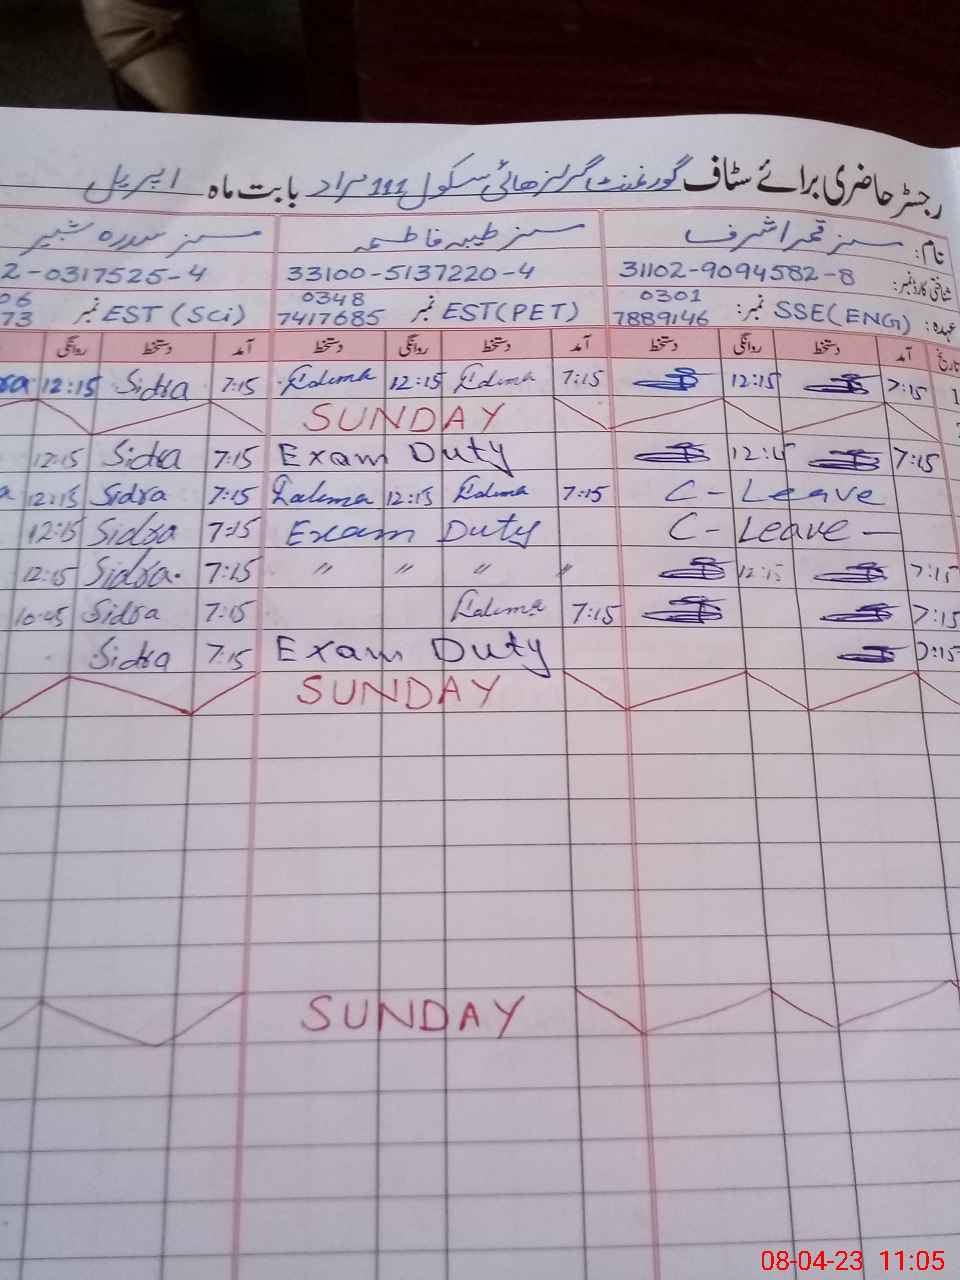 رجسٹر حاضری برائے سٹاف گورنمنٹ گرلز ھائی سکول 111 مراد بابت ماہ اپریل
نام: مسز قمر اشرف مسز طیبہ فاطمہ مسز سدرہ شبیر
شناختی کارڈ نمبر: 31102-9094582-8 33100-5137220-4 2-0317525-4
عہدہ: SSE(ENG) نمبر: 0301 7889146 EST(PET) نمبر 0348 7417685 EST (SCi) نمبر 06 73
تاریخ آمد دستخط روانگی دستخط آمد دستخط روانگی دستخط آمد دستخط روانگی
1 7:15 12:15 7:15 Fatima 12:15 Fatima 7:15 Sidra 12:15
SUNDAY
7:15 12:15 Exam Duty 7:15 Sidra 12:15
C - Leave 7:15 Fatima 12:15 Fatima 7:15 Sidra 12:15
C - Leave — Exam Duty 7:15 Sidra 12:15
7:15 12:15 " " " " 7:15 Sidra. 12:15
7:15 7:15 Fatima 7:15 Sidra 10:45
7:15 Exam Duty 7:15 Sidra
SUNDAY
SUNDAY
08-04-23 11:05